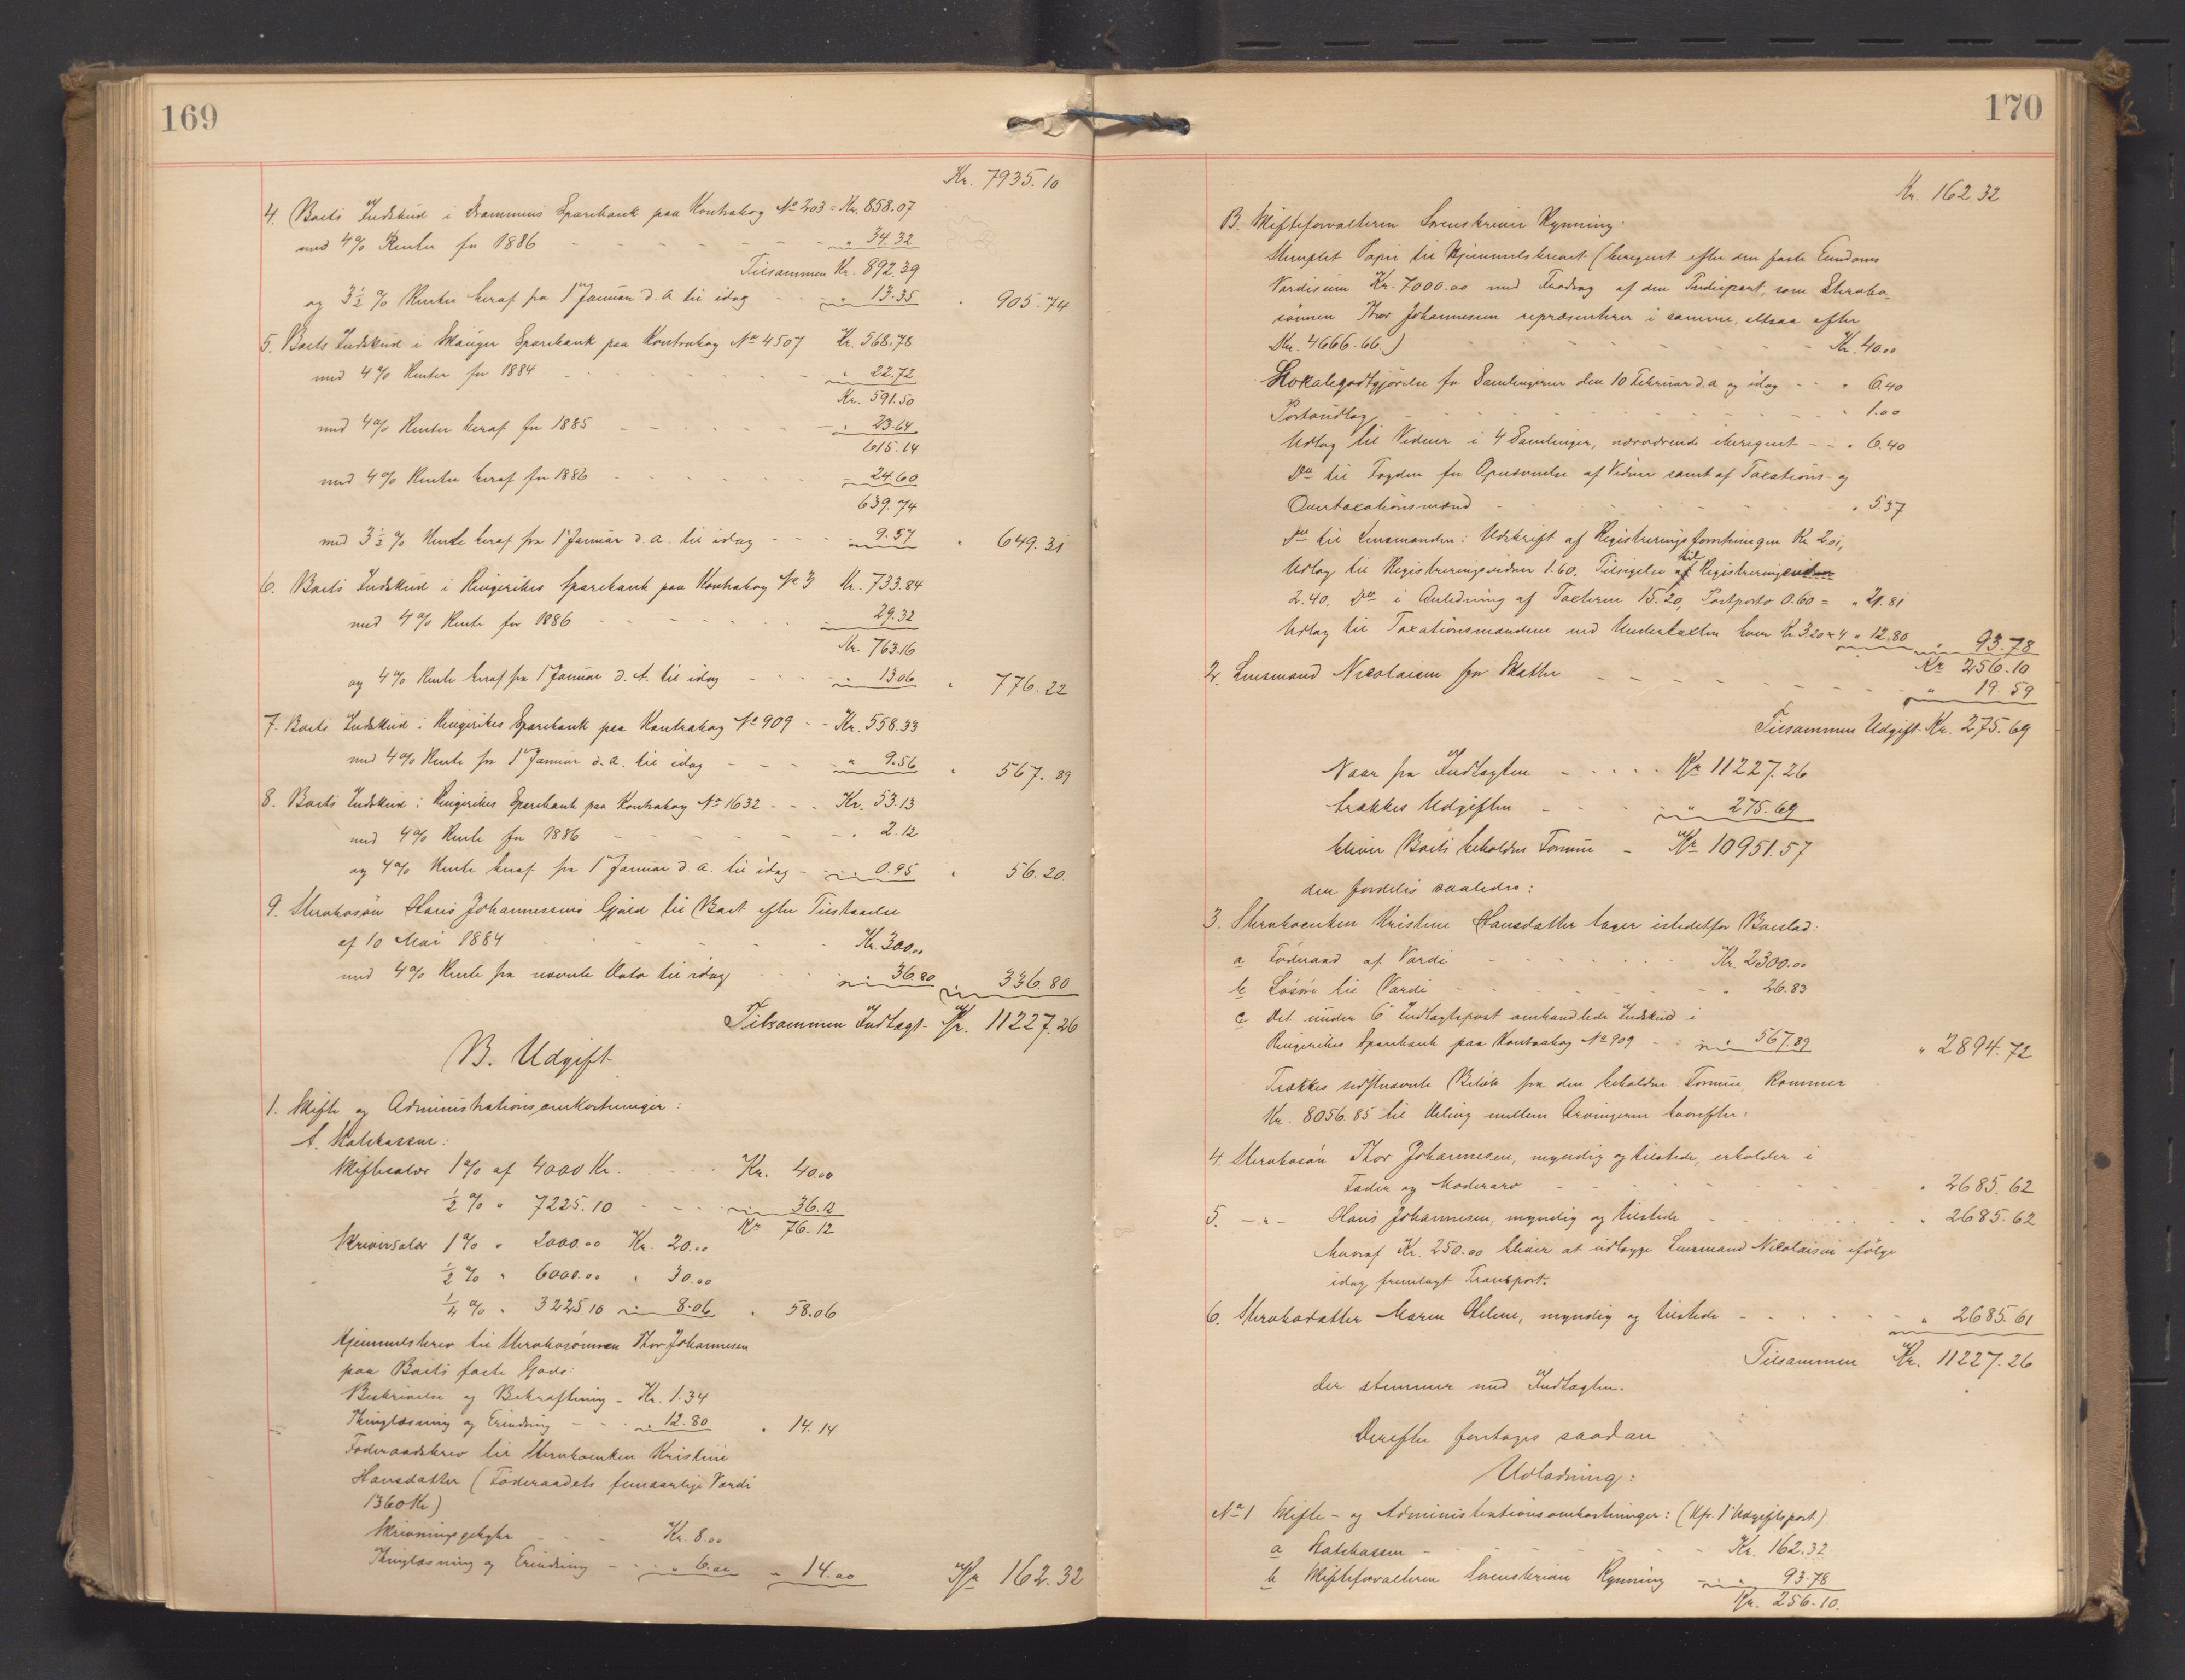 169
Kr. 7935.10
4. Boets Indskud i Drammens Sparebank paa Kontrabog No 203 = Kr. 858.07
med 4% Renter for 1886 - - - - " 34.32
Tilsammen Kr. 892.39
og 3½ % Renter heraf fra 1 Januar d. A. til idag - - " 13.35 " 905.74
5. Boets Indskud i Modum Sparebank paa Kontrabog No 4507 Kr. 568.78
med 4% Renter for 1884 - - - " 22.72
Kr. 591.50
med 4% Renter heraf for 1885 - - - " 23.64
615.14
med 4% Renter heraf for 1886 - - - 24.60
639.74
med 3½ % Rente heraf fra 1 Januar d. a. til idag - - - 9.57 " 649.31
6. Boets Indskud i Ringerikes Sparebank paa Kontrabog No 3 Kr. 733.84
med 4% Rente for 1886 - - - 29.32
Kr. 763.16
og 4% Rente heraf fra 1 Januar d. A. til idag - - - 13.06 " 776.22
7. Boets Indskud i Ringerikes Sparebank paa Kontrabog No 909 - - Kr. 558.33
med 4% Rente fra 1 Januar d. a. til idag - - - " 9.56 " 567.89
8. Boets Indskud i Ringerikes Sparebank paa Kontrabog No 1632 - - - Kr. 53.13
med 4% Rente for 1886 - - - " 2.12
og 4% Rente heraf fra 1 Januar d. a. til idag - " 0.95 " 56.20
9. Sterbosøn Hans Johannessens Gjæld til Boet efter Tilstaaelse
af 10 Mai 1884 - - - Kr. 300.00
med 4% Rente fra nævnte Dato til idag - - - " 36.80 " 336.80
Tilsammen Indtægt - Kr. 11227.26
B. Udgift
1. Skifte og Administrationsomkostninger:
A. Statskassen:
Skiftesalær 1% af 4000 Kr. - - - Kr. 40.00
½ % " 7225.10 - - - 36.12
Kr 76.12
Skriversalær 1% " 2000.00 Kr. 20.00
½ % " 6000.00 " 30.00
¼ % " 3225.10 " 8.06 " 58.06
Hjemmelsbrev til Sterbosønnen Thor Johannesen
paa Boets faste Gods:
Beskrivelse og Bekræftning - Kr. 1.34
Thinglæsning og Erindring - - - " 12.80 " 14.14
Føderaadsbrev til Sterboenken Kristine
Hansdatter (Føderaadets femaarlige Værdi
1360 Kr)
Skrivningsgebyhr - - - Kr. 8.00
Thinglæsning og Erindring - - " 6.00 " 14.00 Kr 162.32
170
Kr. 162.32
B. Skifteforvalteren Sorenskriver Rynning:
Stemplet Papir til Hjemmelsbrevet (beregnet efter den faste Eiendoms
Værdisum Kr. 7000.00 med Fradrag af den Trediepart, som Sterbo-
sønnen Thor Johannessen repræsenterer i samme, altsaa efter
Kr. 4666.66.) - - - Kr. 40.00
Lokalegodtgjørelse for Samlingerne den 10 Februar d. a og idag - - " 6.40
Portoudlæg - - - " 1.00
Udlæg til Vidner i 4 Samlinger, nærværende iberegnet - - " 6.40
Do til Fogden for Opnævnelse af Vidner samt af Taxations- og
Overtaxationsmænd - - - " 5.37
Do til Lensmanden: Udskrift af Registreringsforretningen Kr. 2.01,
Udlæg til Registreringsvidner 1.60. Tilsigelse til Registreringen
2.40. Do i Anledning af Taxterne 15.20, Postporto 0.60 = " 21.81
Udlæg til Taxationsmændene ved Undertaxten hver Kr. 3.20 x 4 " 12.80 " 93.78
Kr 256.10
2. Lensmand Nicolaisen for Skatter - - - " 19.59
Tilsammen Udgift Kr. 275.69
Naar fra Indtægten - - - Kr 11227.26
trækkes Udgiften - - - " 275.69
bliver Boets beholdne Formue - Kr 10951.57
der fordeles saaledes:
3. Sterboenken Kristine Hansdatter tager istedetfor Boeslod:
a Føderaad af Værdi - - - Kr. 2300.00
b Løsøre til Værdi - - - " 26.83
c Det under 6 Indtægtspost omhandlede Indskud i
Ringerikes Sparebank paa Kontrabog No 909 - - " 567.89 " 2894.72
Trækkes sidstnævnte Beløb fra den beholdne Formue, kommer
Kr. 8056.85 til Deling mellem Arvingerne hvorefter:
4. Sterbosøn Thor Johannesen, myndig og tilstede, erholder i
Fader og Moderarv - - - " 2685.62
5. - " - Hans Johannesen, myndig og tilstede - - - " 2685.62
hvoraf Kr. 250.00 bliver at udlægge Lensmand Nicolaisen ifølge
idag fremlagt Transport.
6. Sterbodatter Maren Helene, myndig og tilstede - - - " 2685.61
Tilsammen Kr. 11227.26
der stemmer med Indtægten.
Derefter foretages saadan
Udlodning:
No 1 Skifte- og Administrationsomkostninger: (Kfr. 1 Udgiftspost).
a Statskassen - - - Kr. 162.32
b Skifteforvalteren Sorenskriver Rynning - " 93.78
Kr. 256.10.